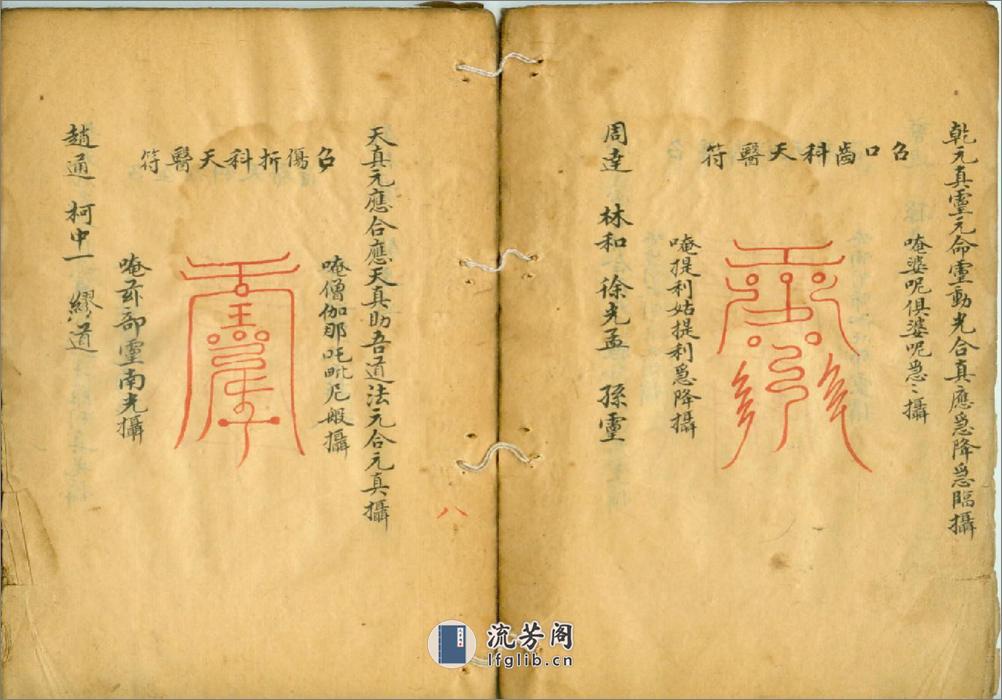 乾元真靈元命靈動光合真應急降急臨攝
召口齒科天醫符
唵婆呢俱婆呢急〻攝
唵提利姑提利急降攝
周達 林和合 徐光孟 孫靈
天真元應合應天真助吾道法元合元真攝
召傷折科天醫符
唵僧伽那吒毗尼般攝
唵部靈南光攝
趙通 柯中一 繆道
八
流芳阁
lfglib.cn